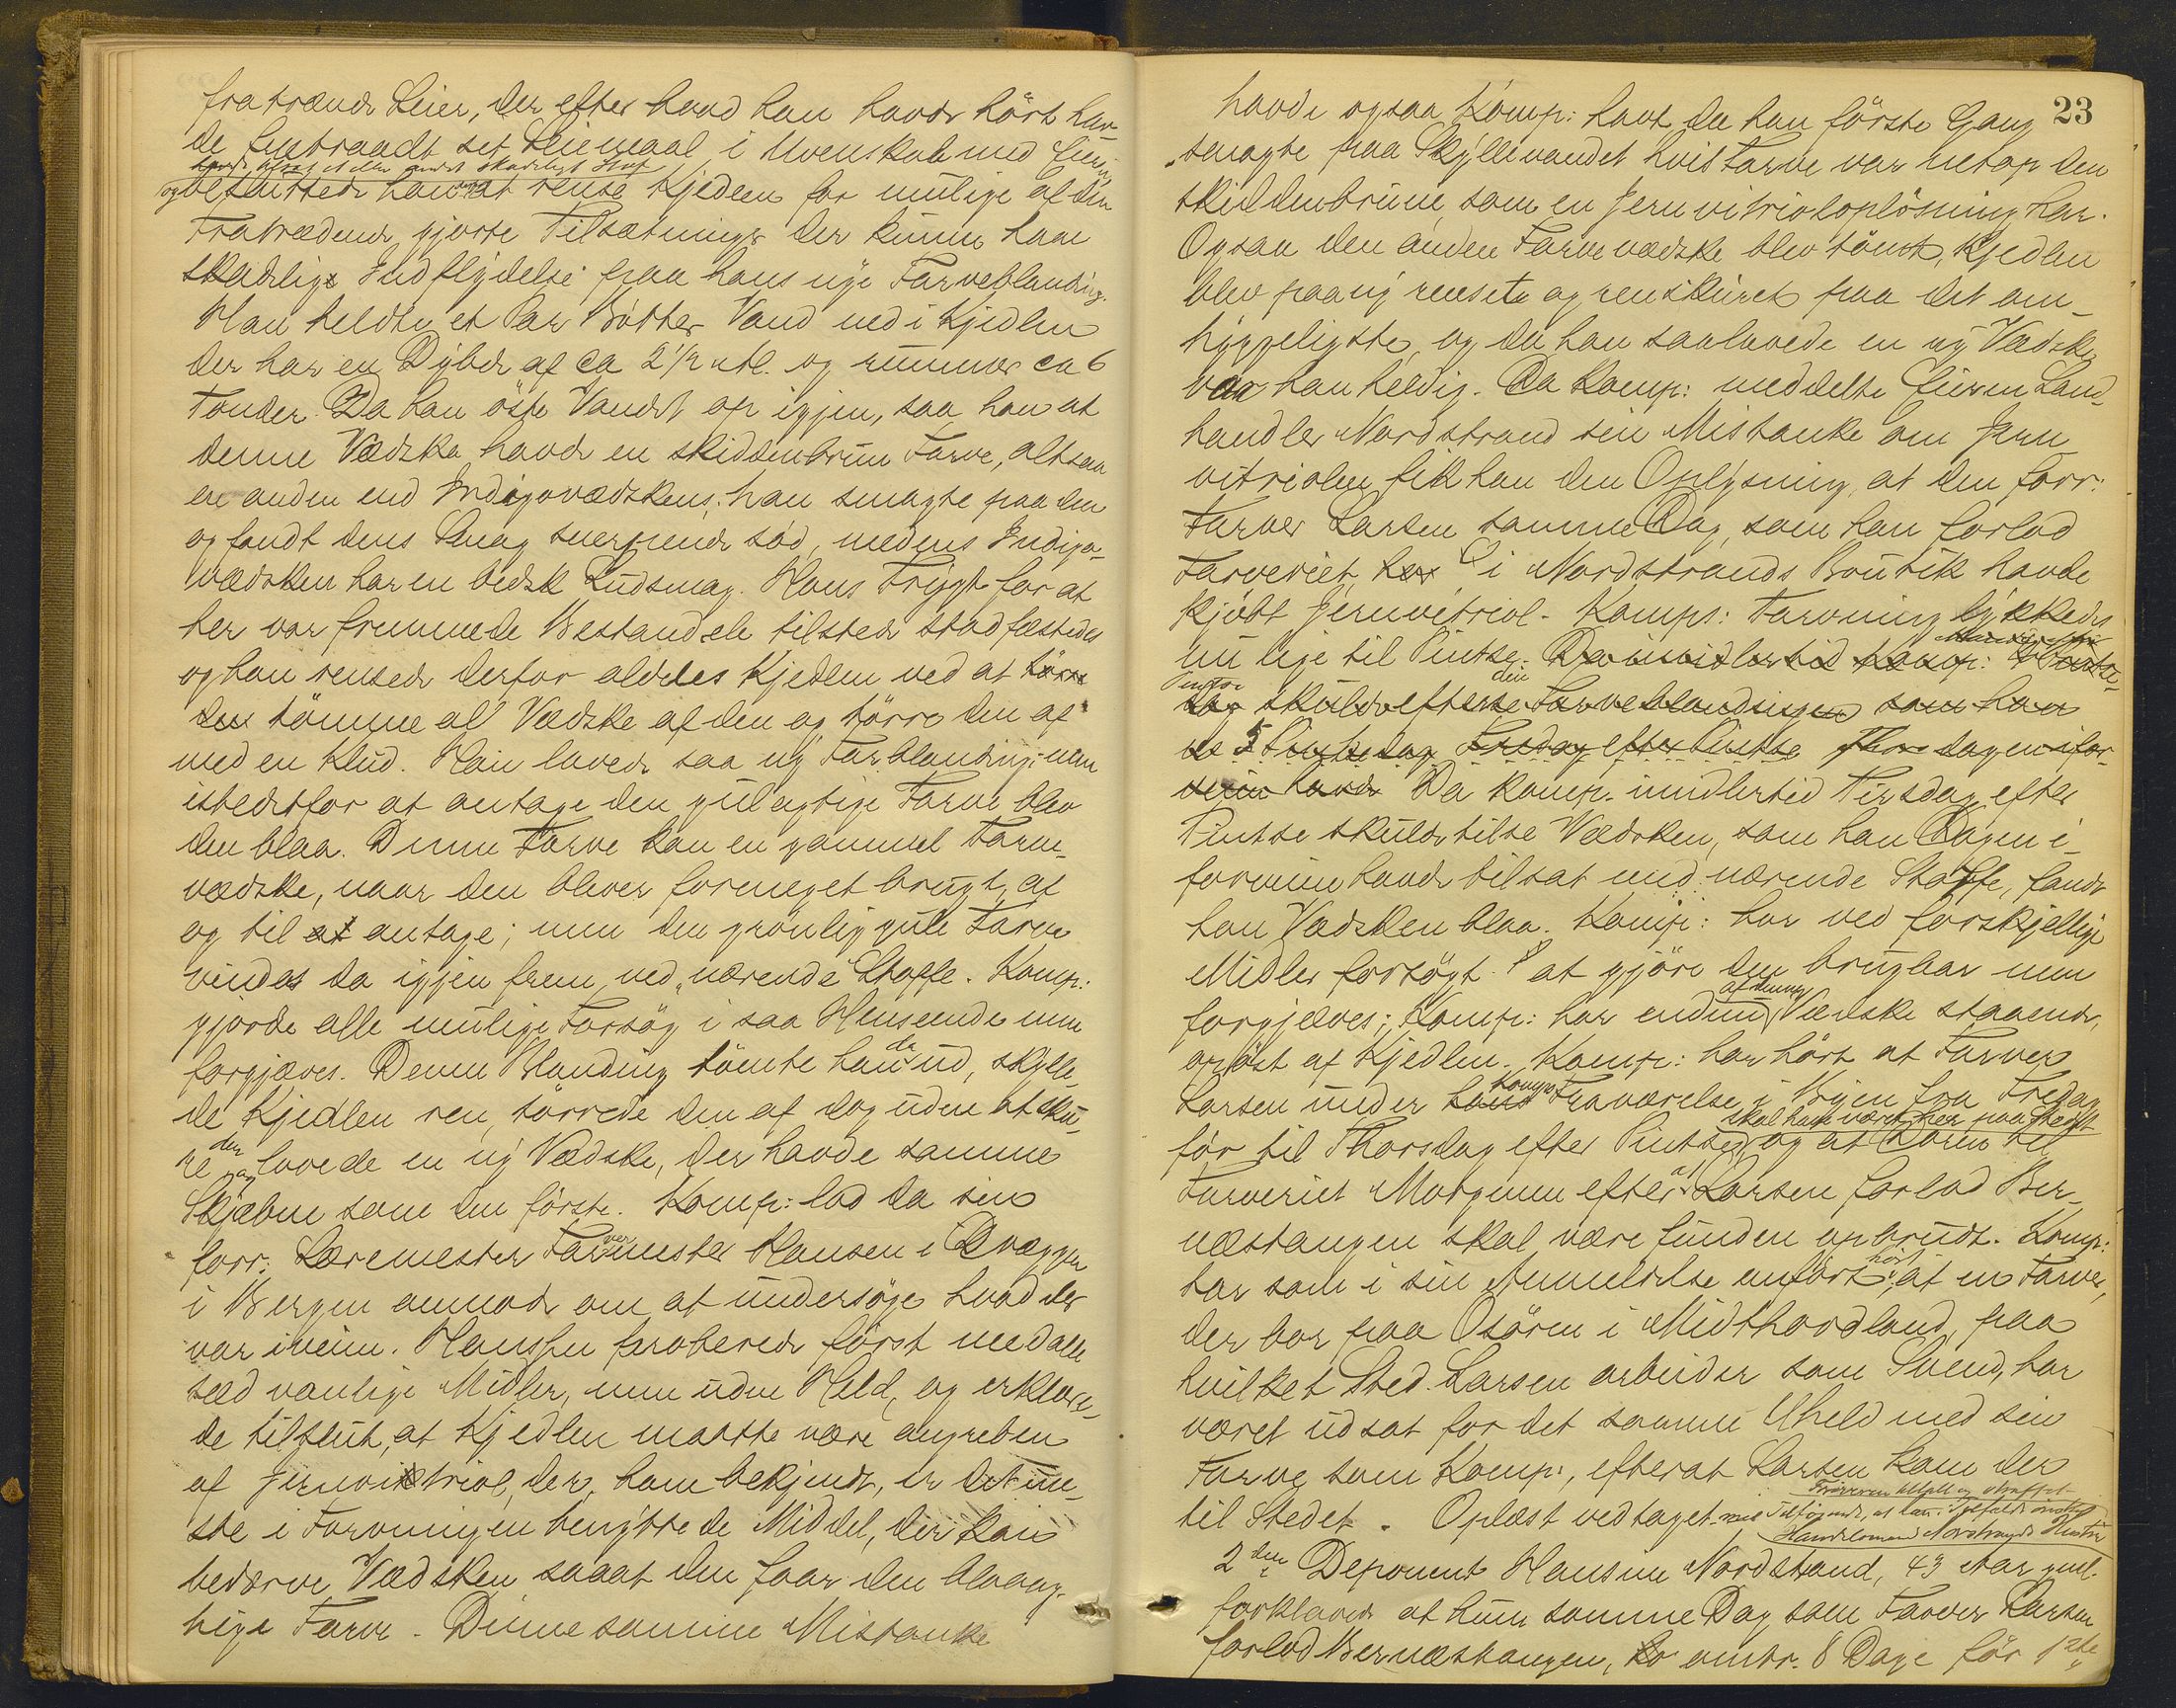 fratrædende Leier, der efter hvad han havde hørt hav-
de fratraadt sit Leiemaal i Uvenskab med Eieren,
havde ilagt et eller andet skadeligt Stof
og besluttede han at rense Kjedlen for mulige af den
Fratrædende gjorte Tilsætninger der kunne have
skadelig Indflydelse paa hans nye Farveblanding.
Han heldte et Par Bøtter Vand ned i Kjedlen
der har en Dybde af ca 2 1/2 al. og rummer ca 6
Tønder. Da han øste Vandet op igjen, saa han at
denne Vædske havde en skiddenbrun Farve, altsaa
en anden end Indigovædskens; han smagte paa den
og fandt dens Smag snerpende sød, medens Indigo-
vædsken har en bedsk Ludsmag. Hans Frygt for at
her var fremmede Bestanddele tilstede stadfæstedes
og han rensede derfor aldeles Kjedlen ved at tørre
den tømme all Vædske af den og tørre den af
med en Klud. Han lavede saa ny Farblanding; men
istedetfor at antage den gulagtige Farve blev
den blaa. Denne Farve kan en gammel Farve-
vædske, naar den bliver formeget brugt, af
og til at antage; men den grønlig gule Farve
vindes da igjen frem ved "nærende" Stoffe. Komp:
gjorde alle mulige Forsøg i saa Henseende men
forgjæves. Denne Blanding tømte han da ud, skylle-
de Kjedlen ren, tørrede den af dog uden at sku-
re den og lavede en ny Vædske, der havde samme
Skjæbne som den første. Komp: lod da sin
forr: Læremester Farvermester Hansen i Dræggen
i Bergen anmode om at undersøge hvad der
var iveien. Hansen proberede først med alle
sædvanlige Midler, men uden Held, og erklære-
de tilslut, at Kjedlen maatte være angreben
af Jernvitriol, der, ham bekjendt, er det ene-
ste i Farvningen benyttede Middel, der kan
bedærve Vædsken saaat den faar den blaaag-
tige Farve. Denne samme Mistanke
23
havde ogsaa Komp: havt da han første Gang
smagte paa Skyllevandet hvis Farve var netop den
skiddenbrune som en Jernvitriolopløsning har.
Ogsaa den anden Farvevædske blev tømt, Kjedlen
blev paany renset og renskuret paa det om-
hyggeligste, og da han saa lavede en ny Vædske
var han heldig. Da Komp: meddelte Eieren Land-
handler Nordstrand sin Mistanke om Jern
vitriolen fik han den Oplysning, at den forr:
Farver Larsen samme Dag, som han forlod
Farveriet, her i Nordstrands Boutik havde
kjøbt Jernvitriol. Komps: Farvning lykkedes
nu lige til Pintse. Da imidlertid Komp:
Pintse
skulde efterse den Farveblandingen som han
5 Pintsedag Tredag efter Pintse dagen ifor-
veien havde Da komp. imidlertid Tirsdag efter
Pintse skulde tilse Vædsken, som han Dagen i-
forveien havde tilsat med nærende Stoffe, fandt
han Vædsken blaa. Komp: har ved forskjellige
Midler forsøgt at gjøre den brugbar men
forgjæves; Komp: har endnu af denne Vædske staaende,
opøst af Kjedlen. Komp: har hørt at Farver
Larsen under hans Komps Fraværelse i Byen fra Fredag
skal have været her paa Stedet
før til Thorsdag efter Pintse, og at Døren til
Farveriet Morgenen efter at Larsen forlod Ber-
næstangen skal være funden opbrudt. Komp:
har som i sin Anmeldelse anført, hørt at en Farver,
der bor paa Osøren i Midthordland, paa
hvilket Sted Larsen arbeider som Svend, har
været udsat for det samme Uheld med sin
Farve som Komp:, efterat Larsen kom der
til Stedet. Oplæst vedtaget med Tilføiende, at han i Tilfælde ønsker
Farveren tiltalt og straffet
Handelsmand Nordstrands Hustru
2den Deponent Hansine Nordstrand, 43 Aar gml.
forklarede at hun samme Dag som Farver Larsen
forlod Bernæstangen, to omtr. 8 Dage før 12te